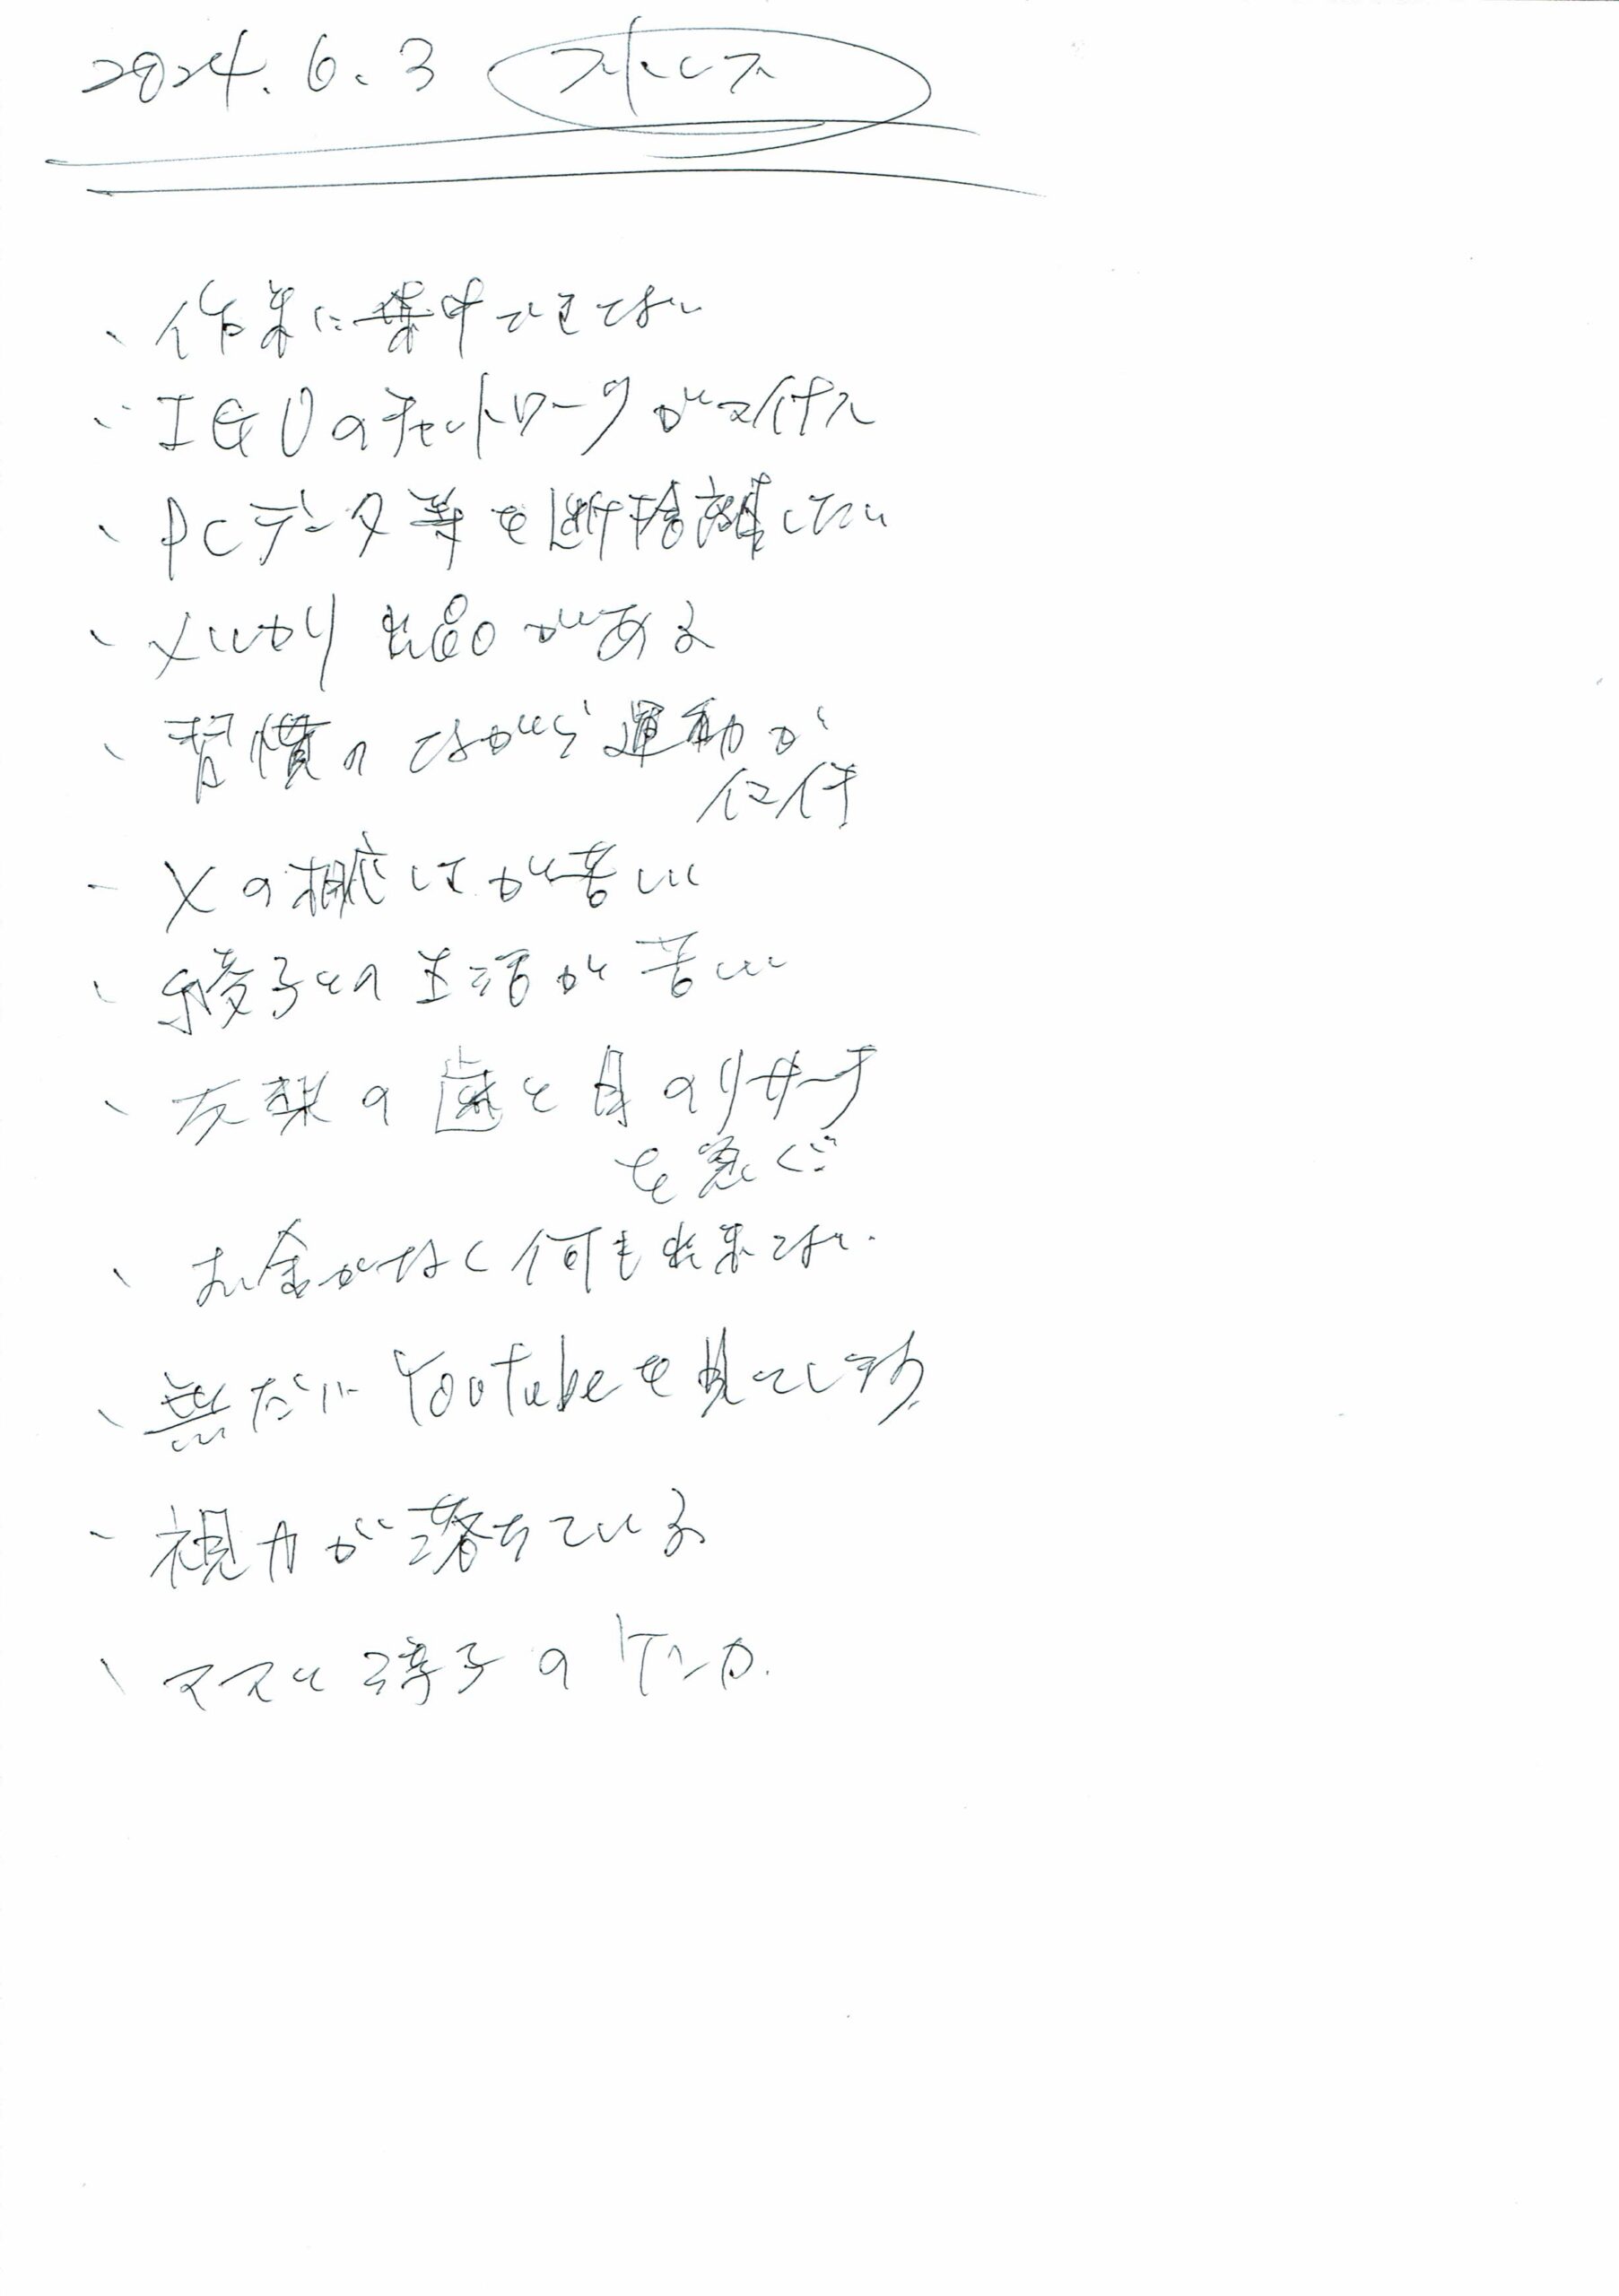 2024.6.3 ストレス
、作業に集中できてない
、IGUのネットワークがマイナス
、PCデータ等を断捨離したい
、メルカリ出品がある
、習慣のながら運動が
イマイチ
、Xの相応しさが苦しい
、綾子との生活が苦しい
、友梨の歯と目のリサーチ
を急ぐ
、お金がなく何も出来ない.
、無だにYouTubeを見てしまう
、視力が落ちている
、ママと淳子のケンカ.